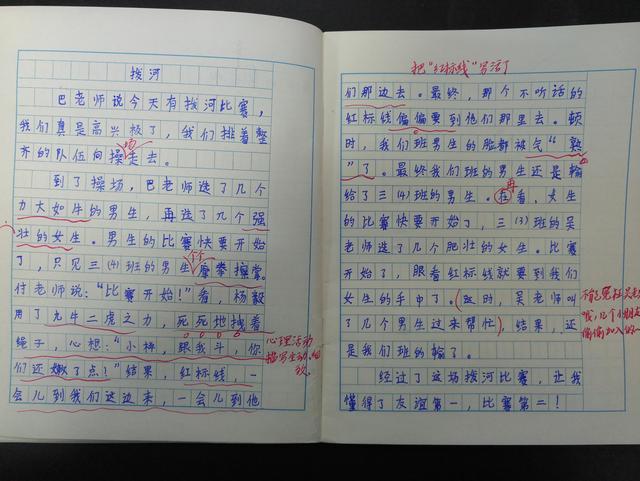 拨河
巴老师说今天有拨河比赛，
我们真是高兴极了，我们排着整
齐的队伍向操场走去。
到了操场，巴老师选了几个
力大如牛的男生，再选了几个强
壮的女生。男生的比赛快要开始
了，只见三(4)班的男生个个摩拳擦掌
付老师说："比赛开始！"看，杨毅
用了九牛二虎之力，死死地拽着
绳子，心想："小样，跟我斗，你
们还嫩了点！"结果，红标线，一
会儿到我们这边来，一会儿到他
心理活动
描写生动、细
致。
把"红标线"写活了
们那边去。最终，那个不听话的
红标线偏偏要到他们那里去。顿
时，我们班男生的脸都被气"熟
"了。最终我们班的男生还是输
给了三(4)班的男生。再看，女生
的比赛快要开始了，三(3)班的吴
老师选了几个肥壮的女生。比赛
开始了，眼看红标线就要到我们
女生的手中了。(这时，吴老师叫
了几个男生过来帮忙)，结果，还
是我们班的输了。
经过了这场拨河比赛，让我
懂得了友谊第一，比赛第二！
不能冤枉吴老师
哦，几个小朋友
偷偷加入的